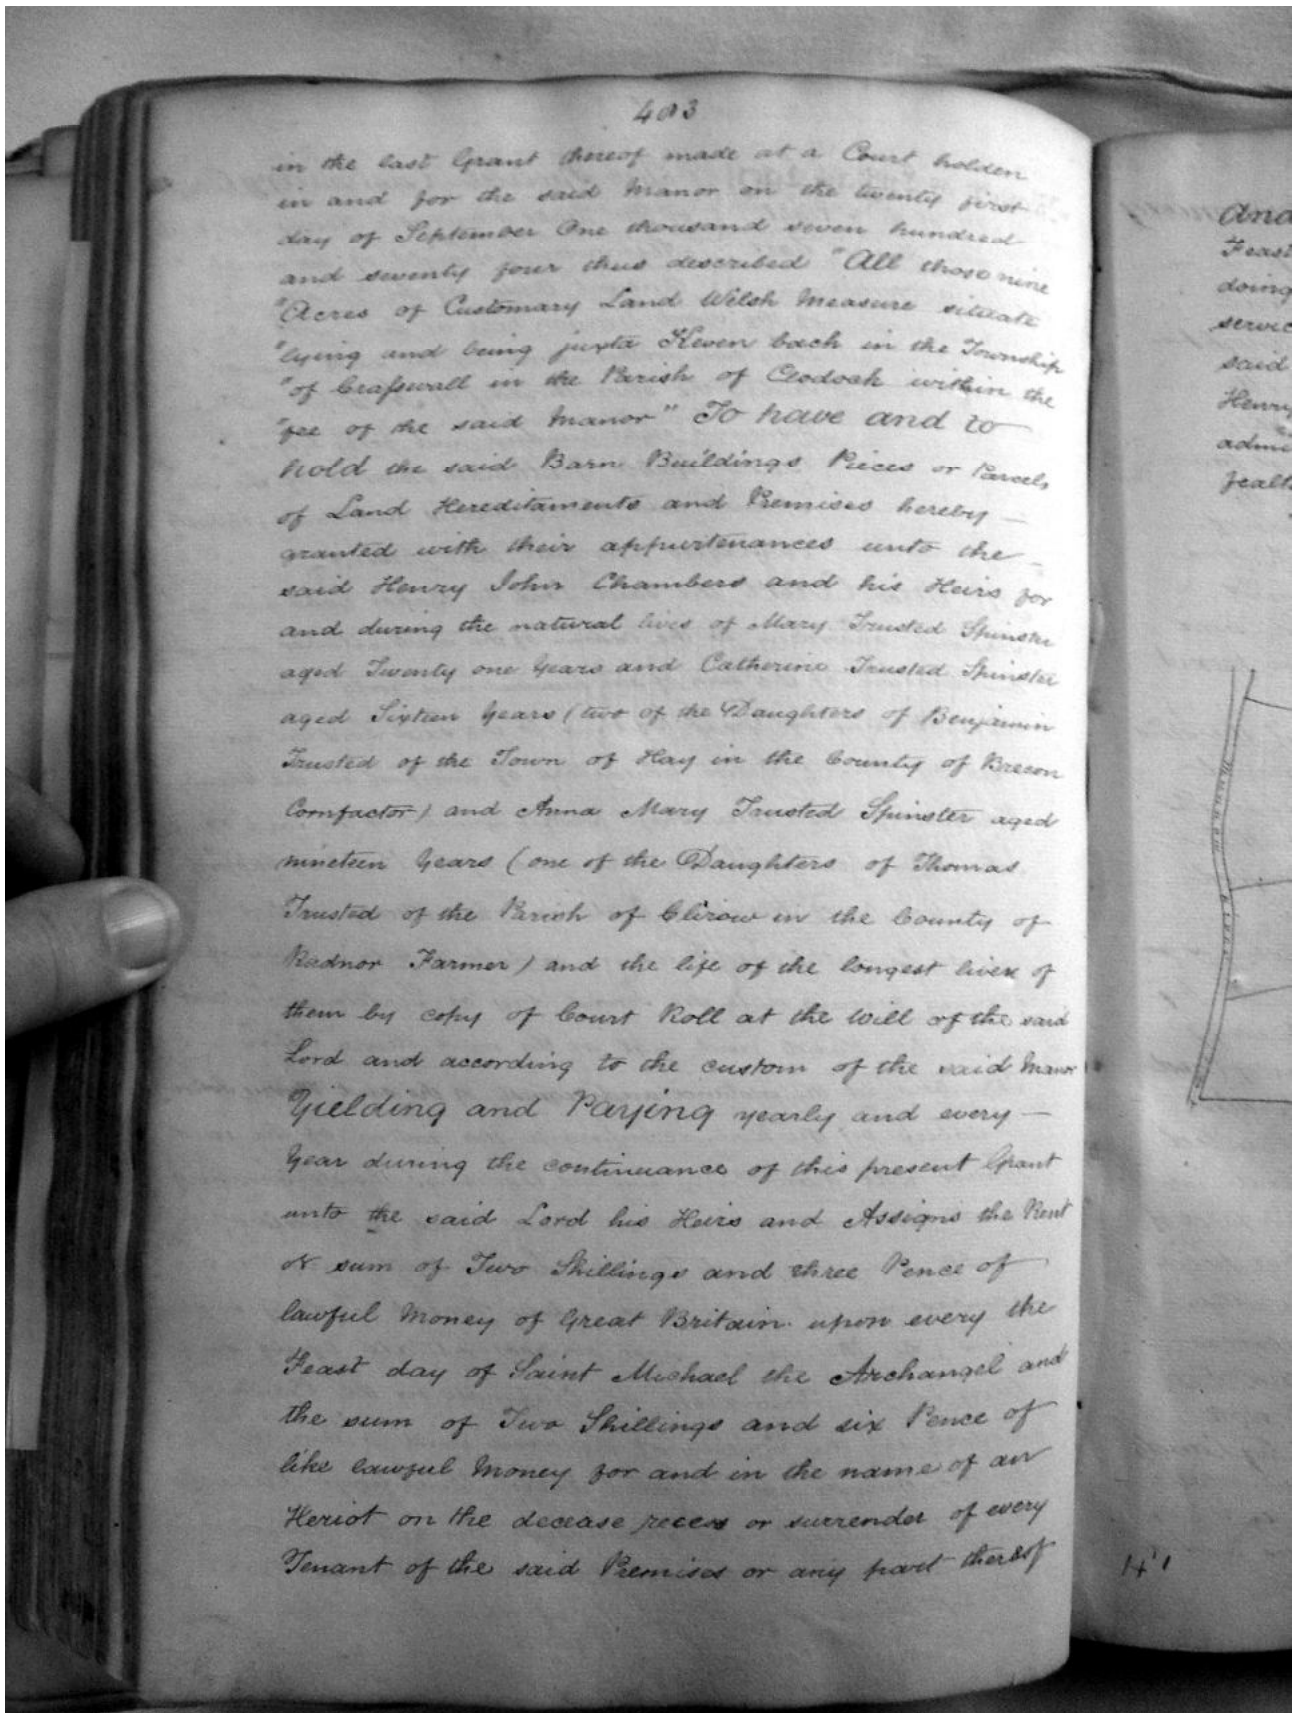 403
in the last Grant thereof made at a Court holden
in and for the said Manor on the twenty first
day of September One thousand seven hundred
and seventy four thus described "All those nine
"Acres of Customary Land Welsh Measure situate
"lying and being juxta Keven bach in the Township
"of Crasswall in the Parish of Clodock within the
"fee of the said Manor" To have and to
hold the said Barn Buildings Pieces or Parcels
of Land Hereditaments and Premises hereby —
granted with their appurtenances unto the —
said Henry John Chambers and his Heirs for
and during the natural lives of Mary Trusted Spinster
aged Twenty one Years and Catherine Trusted Spinster
aged Sixteen Years (two of the Daughters of Benjamin
Trusted of the Town of Hay in the County of Brecon
Cornfactor) and Anna Mary Trusted Spinster aged
nineteen Years (one of the Daughters of Thomas
Trusted of the Parish of Clirow in the County of
Radnor Farmer) and the life of the longest liver of
them by copy of Court Roll at the Will of the said
Lord and according to the custom of the said Manor
Yielding and Paying yearly and every —
Year during the continuance of this present Grant
unto the said Lord his Heirs and Assigns the Rent
or sum of Two Shillings and three Pence of
lawful Money of Great Britain upon every the
Feast day of Saint Michael the Archangel and
the sum of Two Shillings and six Pence of
like lawful Money for and in the name of an
Heriot on the decease recess or surrender of every
Tenant of the said Premises or any part thereof
And
Feast
doing
servic
said
Henry
admi
fealt
Munnow River